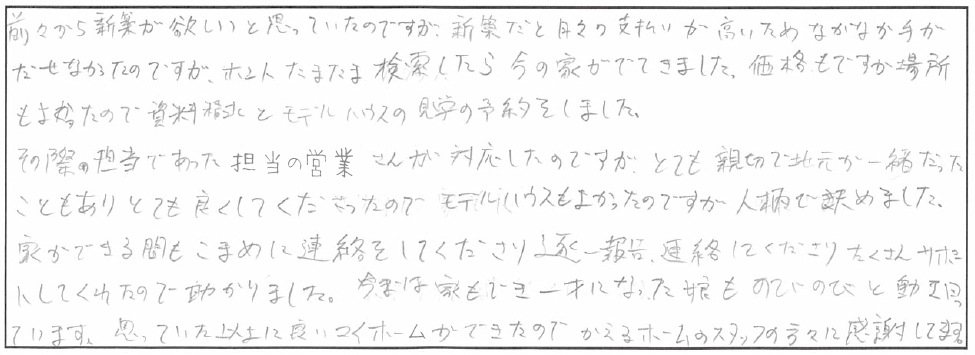 前々から新築が欲しいと思っていたのですが、新築だと月々の支払いが高いためなかなか手が
だせなかったのですが、ホントたまたま検索したら今の家がでてきました。価格もですが場所
もよかったので資料請求とモデルハウスの見学の予約をしました。
その際の担当であった担当の営業さんが対応したのですが、とても親切で地元が一緒だった
こともありとても良くしてくださったのでモデルハウスもよかったのですが人柄で決めました。
家ができる間もこまめに連絡をしてくださり逐一報告、連絡してくださりたくさんサポー
トしてくれたので助かりました。今では家もでき一才になった娘ものびのびと動き回っ
ています。思っていた以上に良いマイホームができたのでかえるホームのスタッフの方々に感謝してます。